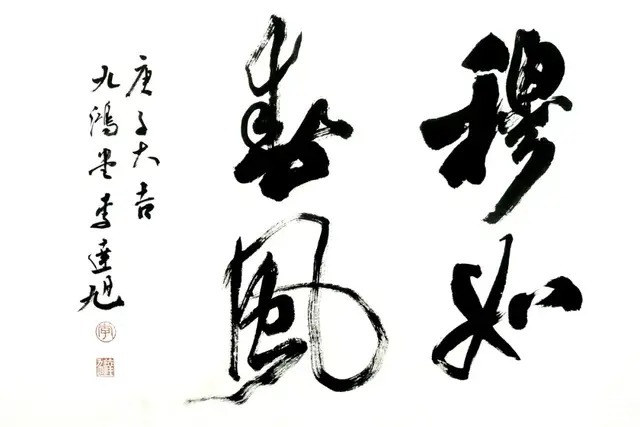 穆如
春風
庚子大吉
九鴻堂李達旭